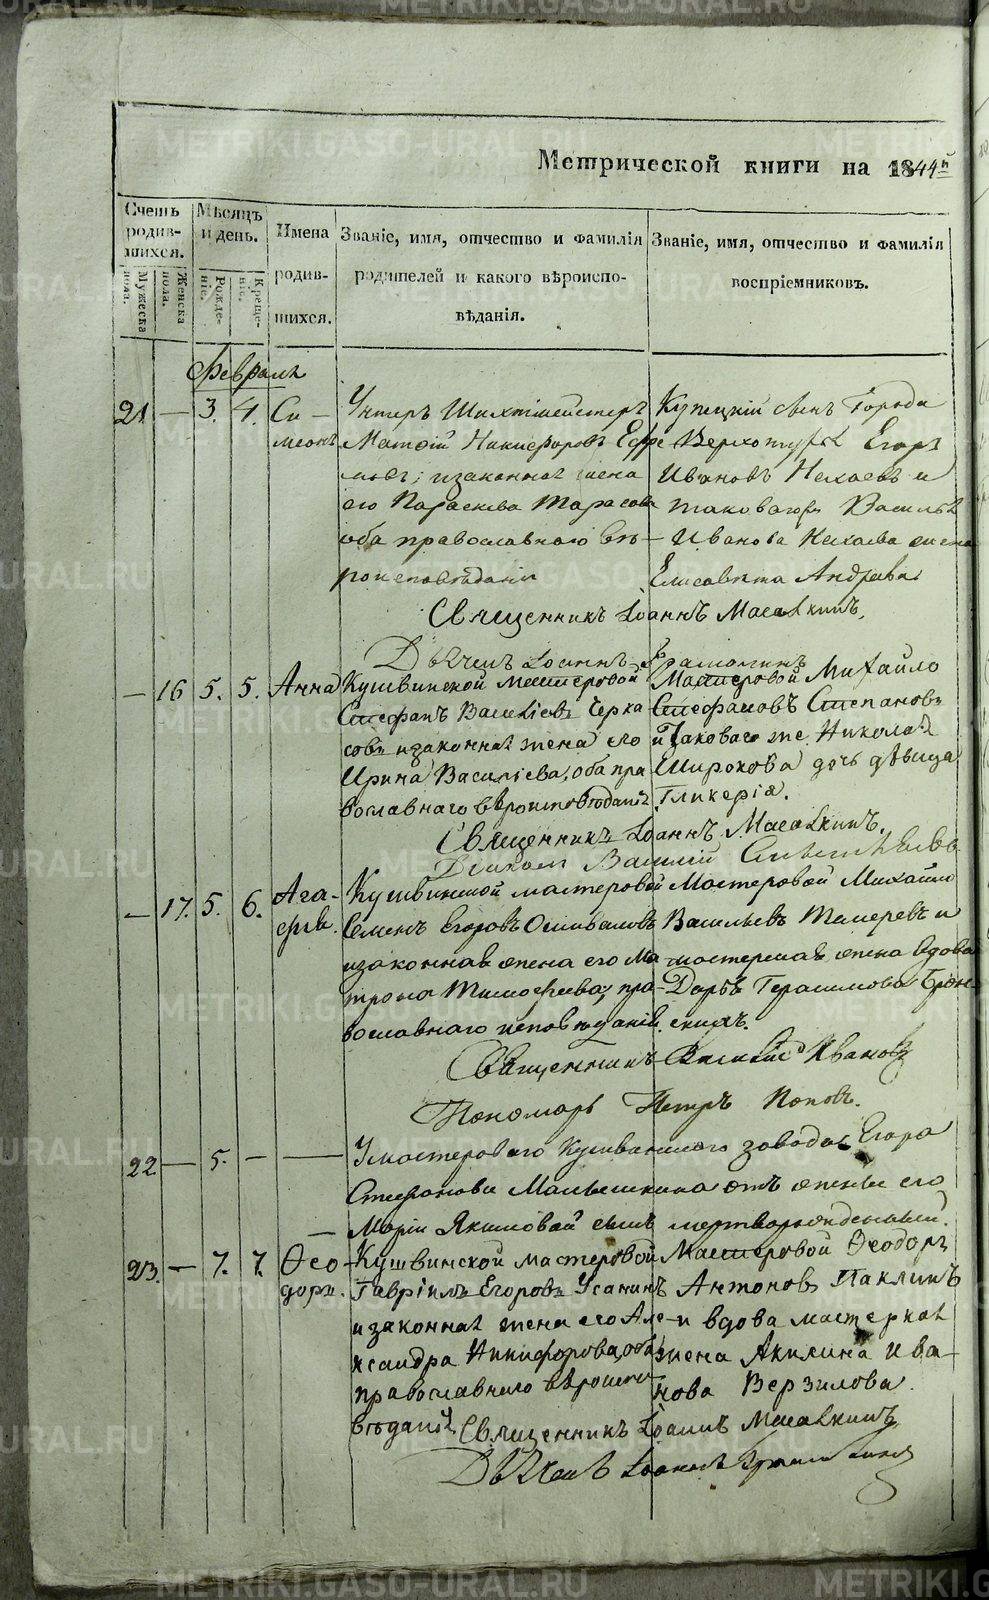 METRIKI.GASO-URAL.RU
Метрической книги на 1844й
Счетъ родившихся.
Мужеска пола.
Женска пола.
Мѣсяцъ и день.
Рожденіе.
Крещеніе.
Имена родившихся.
Званіе, имя, отчество и фамилія родителей и какого вѣроисповѣданія.
Званіе, имя, отчество и фамилія воспріемниковъ.
Февраль
21 — 3. 4. Си-
меонъ
Унтеръ Шихтмейстеръ
Матѳій Никифоровъ Ефре
мовъ; и законная жена
его Параскева Тарасова
оба православнаго вѣ-
роисповѣданія
Купецкій сынъ Города
Верхотурья Егоръ
Ивановъ Нехаевъ и
таковагожъ Василья
Иванова Нехаева жена
Елисавета Андреева
Священникъ Іоаннъ
Дьячекъ Іоаннъ
— 16 5. 5. Анна
Кушвинской мастеровой
Стефанъ Василіевъ Черка
совъ и законная жена его
Ирина Василіева, оба пра
вославнаго вѣроисповѣданія
Мастеровой Михайло
Стефановъ Степановъ
и Таковаго же Николая
Широкова дочь дѣвица
Гликерія.
Священникъ Іоаннъ
Василій
— 17. 5. 6. Ага-
фья.
Кушвинской мастеровой
Семенъ Егоровъ
и законная жена его Ма
трона Тимофеева; пра-
вославнаго исповѣданія.
Мастеровой Михайло
Васильевъ и
мастерская жена вдова
Дарья Герасимова
Священникъ Василій Ивановъ
Пономарь Петръ Поповъ.
22 — 5. — —
У мастероваго Кушвинскаго завода Егора
Стефанова Малышкина отъ жены его
Маріи Якимовой сынъ мертворожденный.
23. — 7. 7. Ѳео-
доръ.
Кушвинской мастеровой
Гавріилъ Егоровъ Усанинъ
и законная жена его Але-
ксандра Никифорова, оба
православнаго вѣроиспо
вѣданія
Мастеровой Ѳеодоръ
Антоновъ Паклинъ
и вдова мастерская
жена Акилина Ива-
нова Верзилова.
Священникъ Іоаннъ
Дьячекъ Іоаннъ